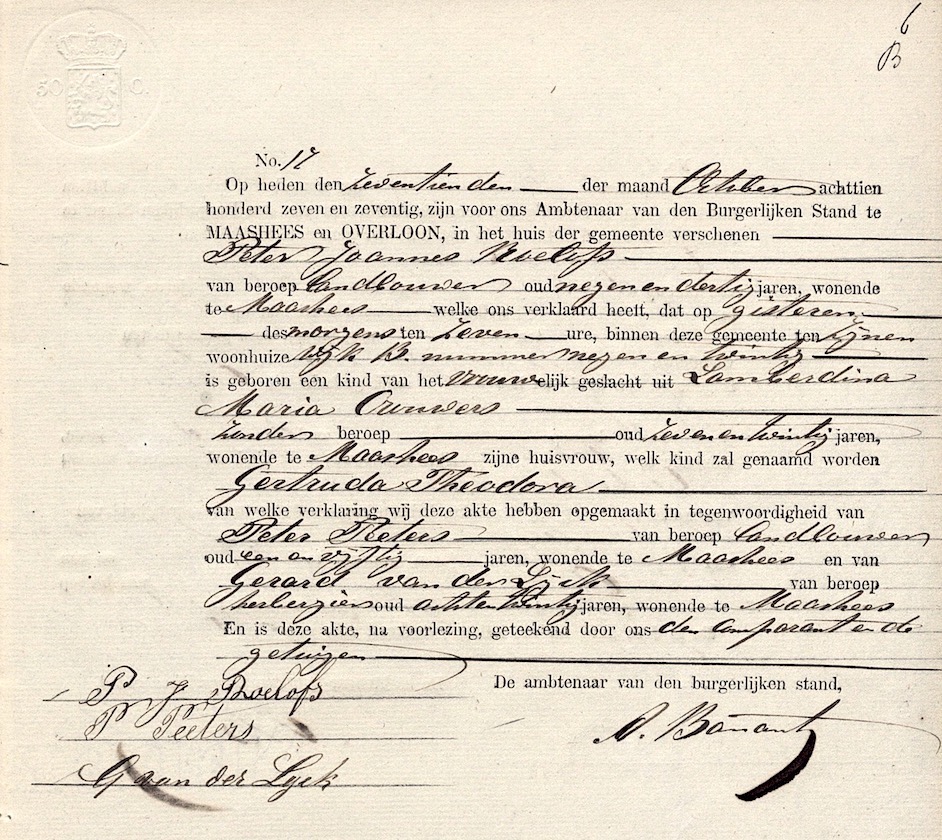 6
B
50 C.
No. 17
Op heden den zeventienden der maand October achttien
honderd zeven en zeventig, zijn voor ons Ambtenaar van den Burgerlijken Stand te
MAASHEES en OVERLOON, in het huis der gemeente verschenen
Peter Joannes Roelofs
van beroep Landbouwer oud negen en dertig jaren, wonende
te Maashees welke ons verklaard heeft, dat op gisteren,
des morgens ten zeven ure, binnen deze gemeente ten zijnen
woonhuize wijk B. nummer negen en twintig
is geboren een kind van het vrouwelijk geslacht uit Lamberdina
Maria Ouwers
zonder beroep oud zeven en twintig jaren,
wonende te Maashees zijne huisvrouw, welk kind zal genaamd worden
Gertruda Theodora
van welke verklaring wij deze akte hebben opgemaakt in tegenwoordigheid van
Peter Peters van beroep Landbouwer
oud een en vijftig jaren, wonende te Maashees en van
Gerard van der Lijck van beroep
herbergier oud acht en twintig jaren, wonende te Maashees
En is deze akte, na voorlezing, geteekend door ons den comparant en de
getuigen
P J Roelofs
De ambtenaar van den burgerlijken stand,
P Peeters
A.
G van der Lyck